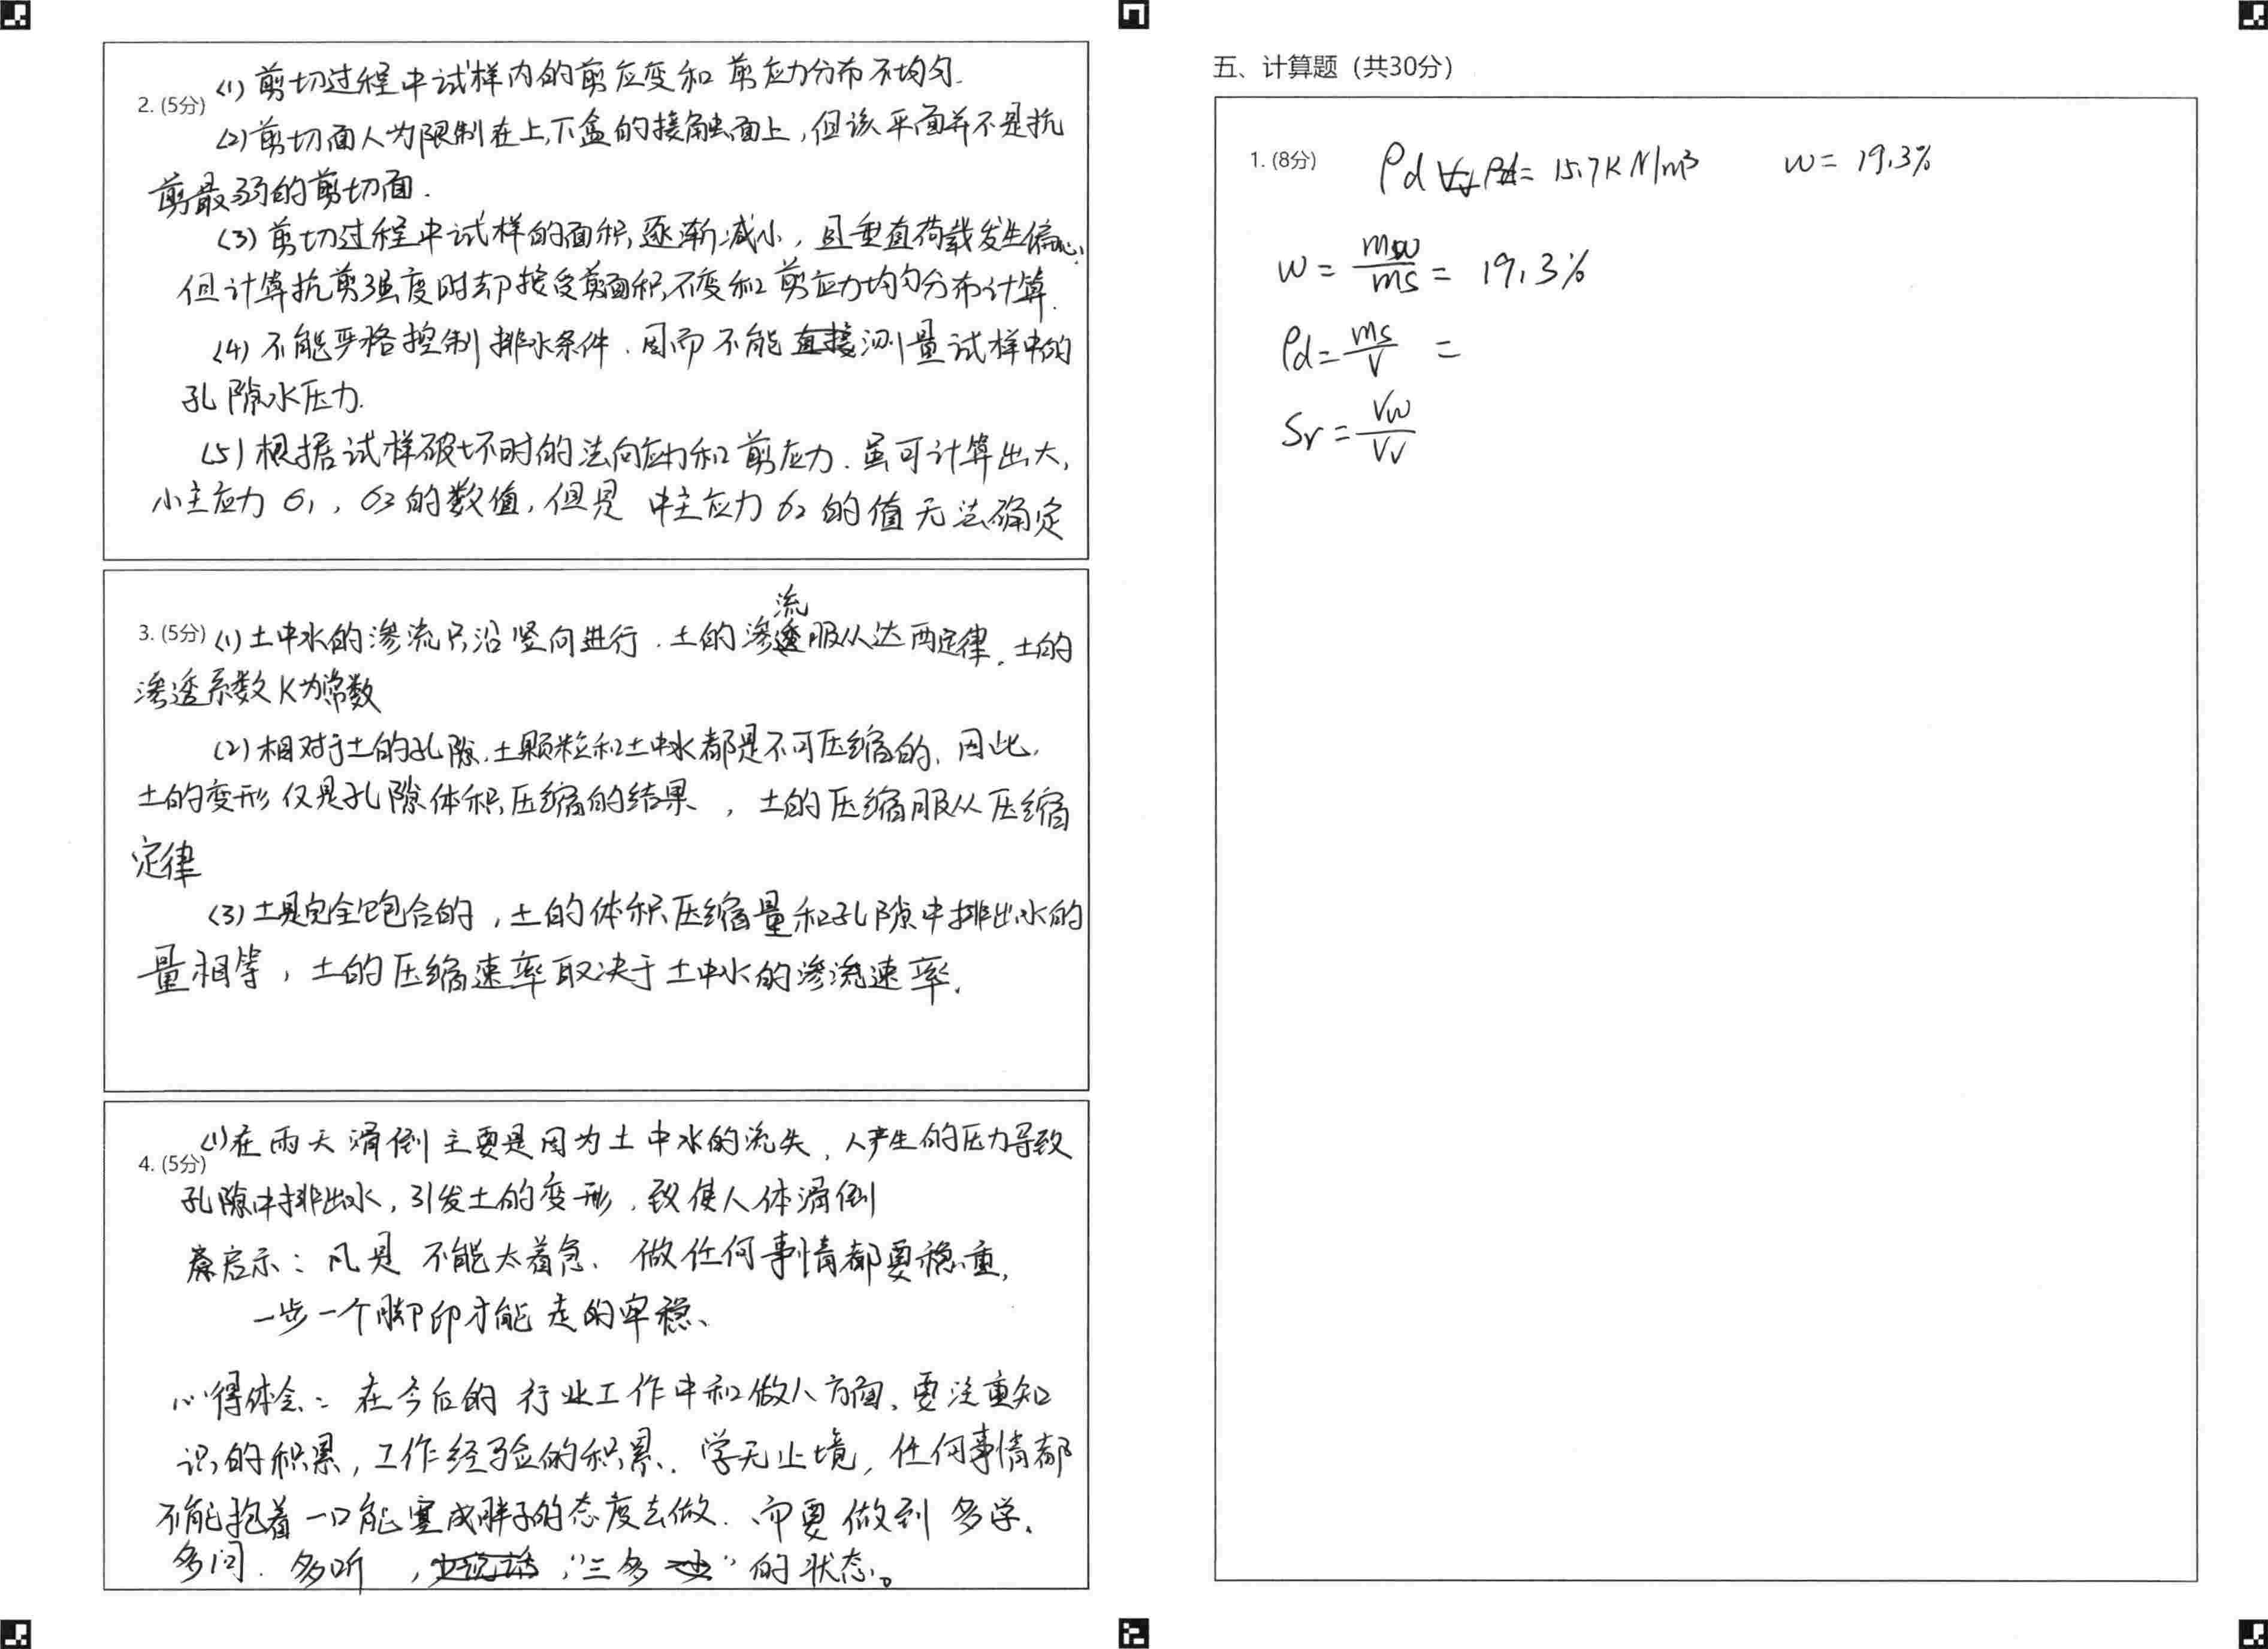 2. (5分) (1) 剪切过程中试样内的剪应变和剪应力分布不均匀.
(2) 剪切面人为限制在上,下盒的接触面上,但该平面并不是抗
剪最弱的剪切面.
(3) 剪切过程中试样的面积逐渐减小,且垂直荷载发生偏心,
但计算抗剪强度时却按受剪面积不变和剪应力均匀分布计算.
(4) 不能严格控制排水条件.因而不能直接测量试样中的
孔隙水压力.
(5) 根据试样破坏时的法向应力和剪应力.虽可计算出大,
小主应力σ1,σ3的数值,但是中主应力σ2的值无法确定
3. (5分) (1) 土中水的渗流只沿竖向进行.土的渗流服从达西定律.土的
渗透系数K为常数
(2) 相对于土的孔隙,土颗粒和土中水都是不可压缩的,因此,
土的变形仅是孔隙体积压缩的结果,土的压缩服从压缩
定律
(3) 土是完全饱合的,土的体积压缩量和孔隙中排出水的
量相等,土的压缩速率取决于土中水的渗流速率.
4. (5分) (1) 在雨天滑倒主要是因为土中水的流失,人产生的压力导致
孔隙中排出水,引发土的变形,致使人体滑倒
启示:凡是不能太着急、做任何事情都要稳重,
一步一个脚印才能走的牢稳、
心得体会:在今后的行业工作中和做人方面、要注重知
识的积累,工作经验的积累.学无止境,任何事情都
不能抱着一口能塞成胖子的态度去做.而要做到多学、
多问.多听,“三多”的状态。
五、计算题(共30分)
1. (8分) ρd = 15.7KN/m³ w = 19.3%
w = mw/ms = 19.3%
ρd = ms/V =
Sr = Vw/Vv